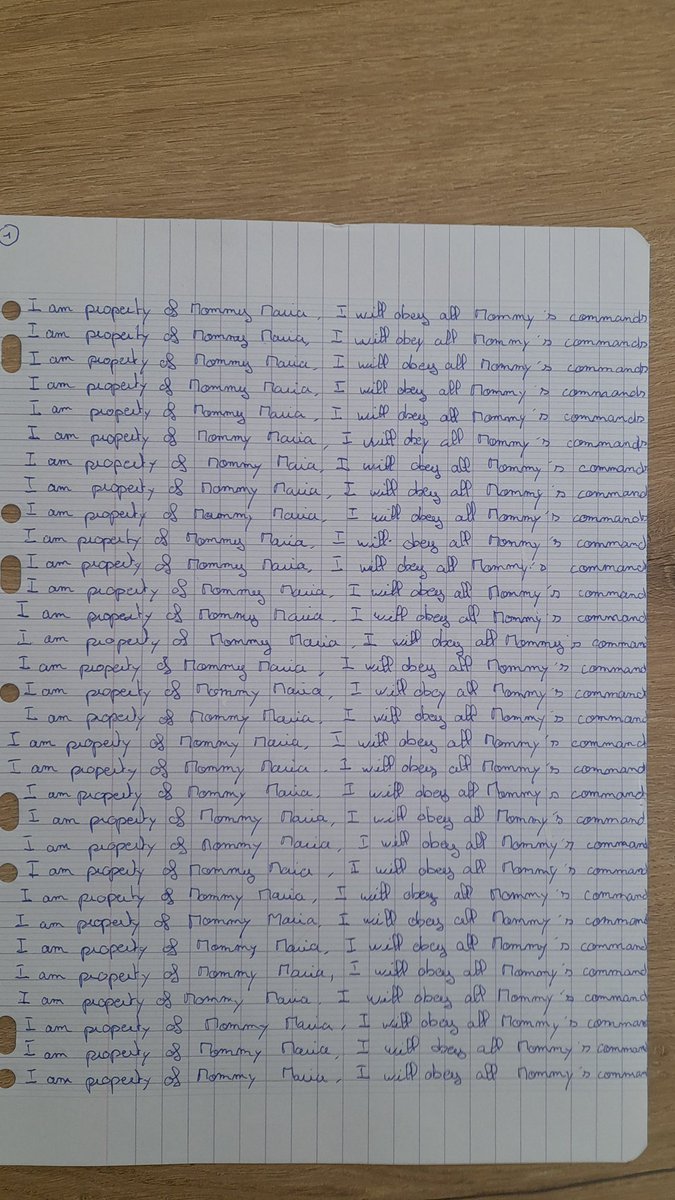 1
I am property of Mommy Maria, I will obey all Mommy's commands
I am property of Mommy Maria, I will obey all Mommy's commands
I am property of Mommy Maria, I will obey all Mommy's commands
I am property of Mommy Maria, I will obey all Mommy's commands
I am property of Mommy Maria, I will obey all Mommy's commands
I am property of Mommy Maria, I will obey all Mommy's commands
I am property of Mommy Maria, I will obey all Mommy's command
I am property of Mommy Maria, I will obey all Mommy's command
I am property of Mommy Maria, I will obey all Mommy's commands
I am property of Mommy Maria, I will obey all Mommy's command
I am property of Mommy Maria, I will obey all Mommy's command
I am property of Mommy Maria, I will obey all Mommy's command
I am property of Mommy Maria, I will obey all Mommy's command
I am property of Mommy Maria, I will obey all Mommy's comman
I am property of Mommy Maria, I will obey all Mommy's command
I am property of Mommy Maria, I will obey all Mommy's command
I am property of Mommy Maria, I will obey all Mommy's command
I am property of Mommy Maria, I will obey all Mommy's command
I am property of Mommy Maria, I will obey all Mommy's command
I am property of Mommy Maria, I will obey all Mommy's command
I am property of Mommy Maria, I will obey all Mommy's command
I am property of Mommy Maria, I will obey all Mommy's command
I am property of Mommy Maria, I will obey all Mommy's command
I am property of Mommy Maria, I will obey all Mommy's command
I am property of Mommy Maria, I will obey all Mommy's command
I am property of Mommy Maria, I will obey all Mommy's command
I am property of Mommy Maria, I will obey all Mommy's command
I am property of Mommy Maria, I will obey all Mommy's command
I am property of Mommy Maria, I will obey all Mommy's comman
I am property of Mommy Maria, I will obey all Mommy's comman
I am property of Mommy Maria, I will obey all Mommy's comman